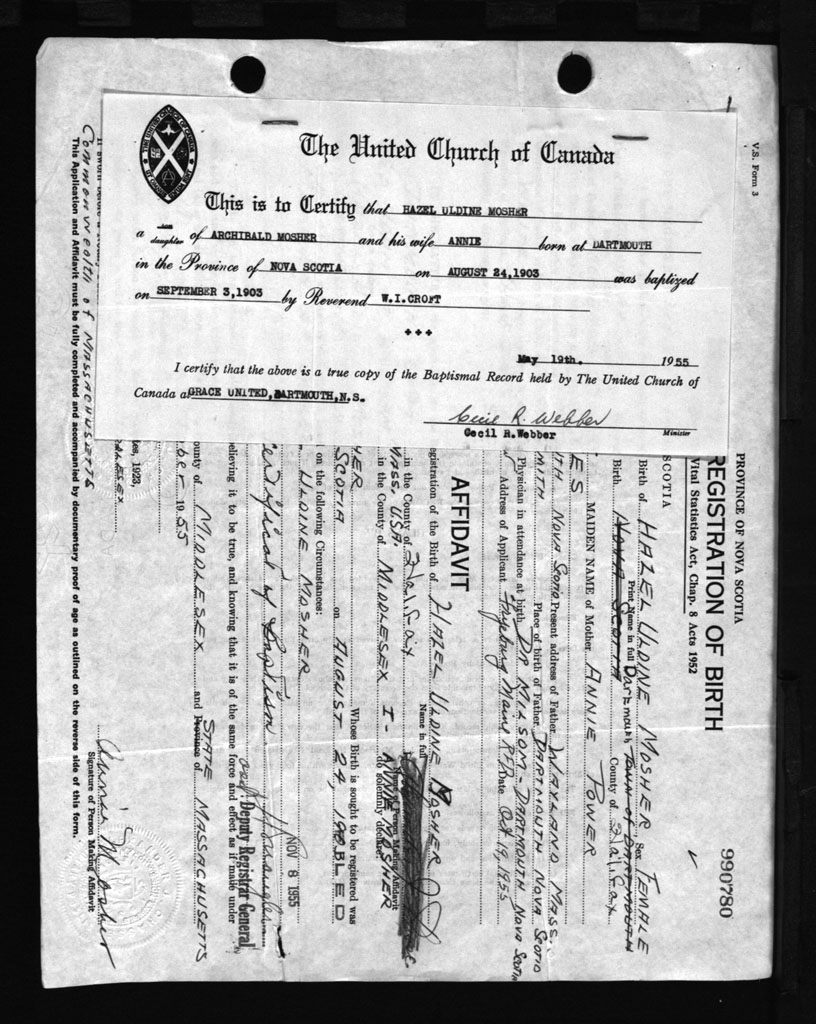 The United Church of Canada
This is to Certify that HAZEL ULDINE MOSHER
a daughter of ARCHIBALD MOSHER and his wife ANNIE born at DARTMOUTH
in the Province of NOVA SCOTIA on AUGUST 24,1903 was baptized
on SEPTEMBER 3,1903 by Reverend W.I.CROFT
May 19th. 1955
I certify that the above is a true copy of the Baptismal Record held by The United Church of
Canada at GRACE UNITED, DARTMOUTH, N.S.
Cecil R. Webber
Cecil R.Webber Minister
V.S. Form 3
990780
PROVINCE OF NOVA SCOTIA
REGISTRATION OF BIRTH
Vital Statistics Act, Chap. 8 Acts 1952
Birth of HAZEL ULDINE MOSHER Sex FEMALE
Print Name in full
SCOTIA
Birth Dartmouth, TOWN OF DARTMOUTH
NOVA SCOTIA County of Halifax
MAIDEN NAME of Mother ANNIE TOWER
NOVA SCOTIA Present address of Father WAYLAND MASS.
Place of birth of Father DARTMOUTH NOVA SCOTIA
Physician in attendance at birth DR MILSOM - DARTMOUTH NOVA SCOTIA
Address of Applicant Maine RFD Date Oct 19, 1955
AFFIDAVIT
egistration of the Birth of HAZEL ULDINE MOSHER
Name in full
in the County of Halifax
MASS. USA. in the County of MIDDLESEX I - ANNIE MOSHER
Name of Person Making Affidavit
do solemnly declare:
Whose Birth is sought to be registered was
SCOTIA on AUGUST 24,
on the following Circumstances:
ULDINE MOSHER
Certificat of Baptism
NOV 8 1955
Deputy Registrar General
elieving it to be true, and knowing that it is of the same force and effect as if made under
ounty of MIDDLESEX and Province of STATE MASSACHUSETTS
1955
Annie Mosher
Signature of Person Making Affidavit
Commonwealth of MASSACHUSETTS
This Application and Affidavit must be fully completed and accompanied by documentary proof of age as outlined on the reverse side of this form.